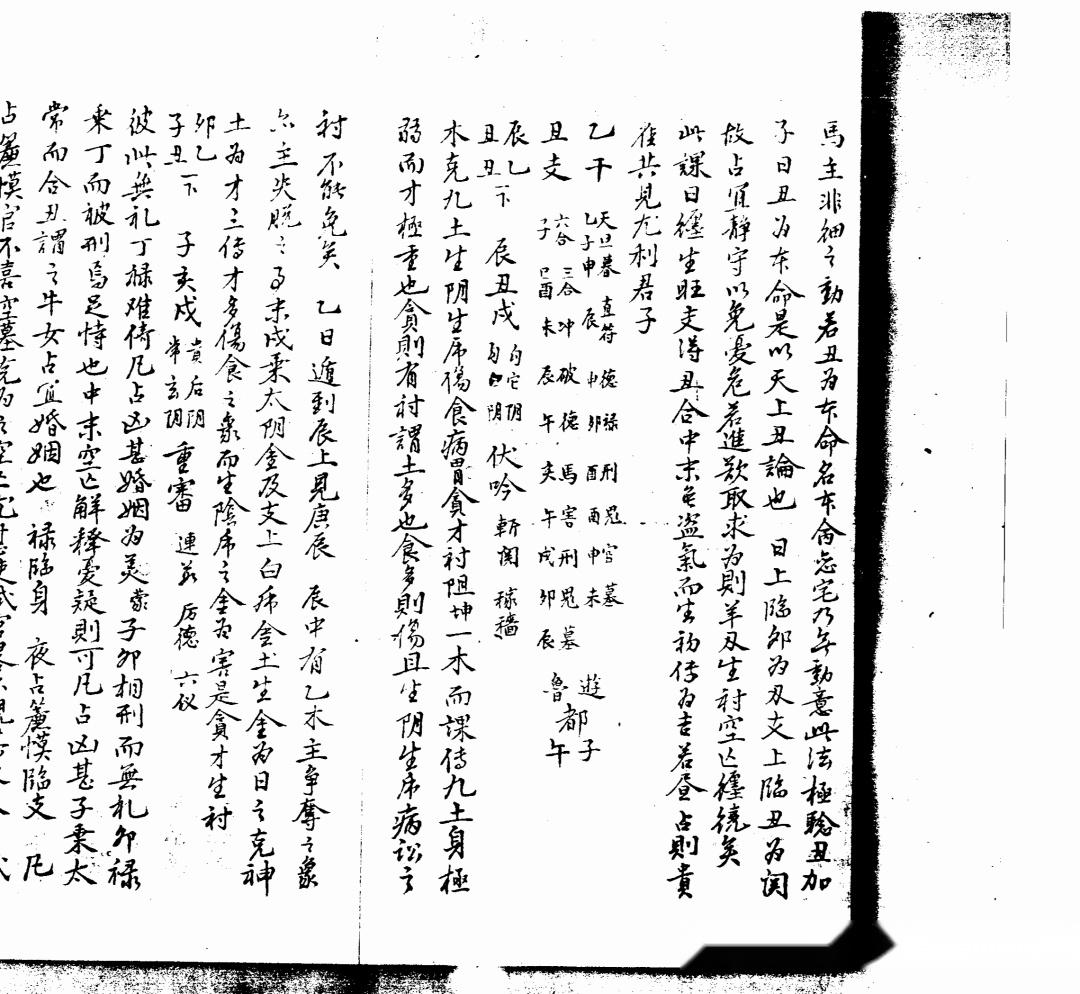 馬主非細之動若丑為本命名本禽忘宅乃無動意此法極驗丑加
子日丑為本命是以天上丑論也 日上臨卯為刃支上臨丑為関
故占宜静守以免憂危若進欲取求為則羊刃生衬空亡纏繞矣
此課日纏生旺支得丑合中末龟盗氣而生初傳為吉若昼占則貴
在共見尤利君子
乙干 天旦暮 直符 德禄刑鬼官墓
乙子申 辰 申卯酉酉申未 遊都子
丑支 六合 三合冲破德馬害刑鬼墓
子 巳酉未辰午亥午戌卯辰 魯都午
辰乙
丑丑一下 辰丑戌 勾白阴 伏吟 斬関 稼穡
木克九土生阴生虎傷食病胃貪才衬阻坤一木而課傳九土身極
弱而才極重也貪則有衬謂土多也食多則傷且生阴生虎病訟之
衬不能免矣 乙日遁到辰上見庚辰 辰中有乙木主争奪之象
亦主炎脱之事末戌乘太阴金及支上白虎金土生金為日之克神
土為才三傳才多傷食之象而生陰虎之金為害是貪才生衬
卯乙
子丑一下 子亥戌 貴后阴 常玄阴 重審 連茹 厉德 六仪
彼此無礼丁禄难倚凡占凶甚婚姻為美蒙子卯相刑而無礼卯禄
乘丁而被刑焉足恃也中末空亡解釋憂疑則可凡占凶甚子乘太
常而合丑謂之牛女占宜婚姻也 禄臨身 夜占簾幙臨支 凡